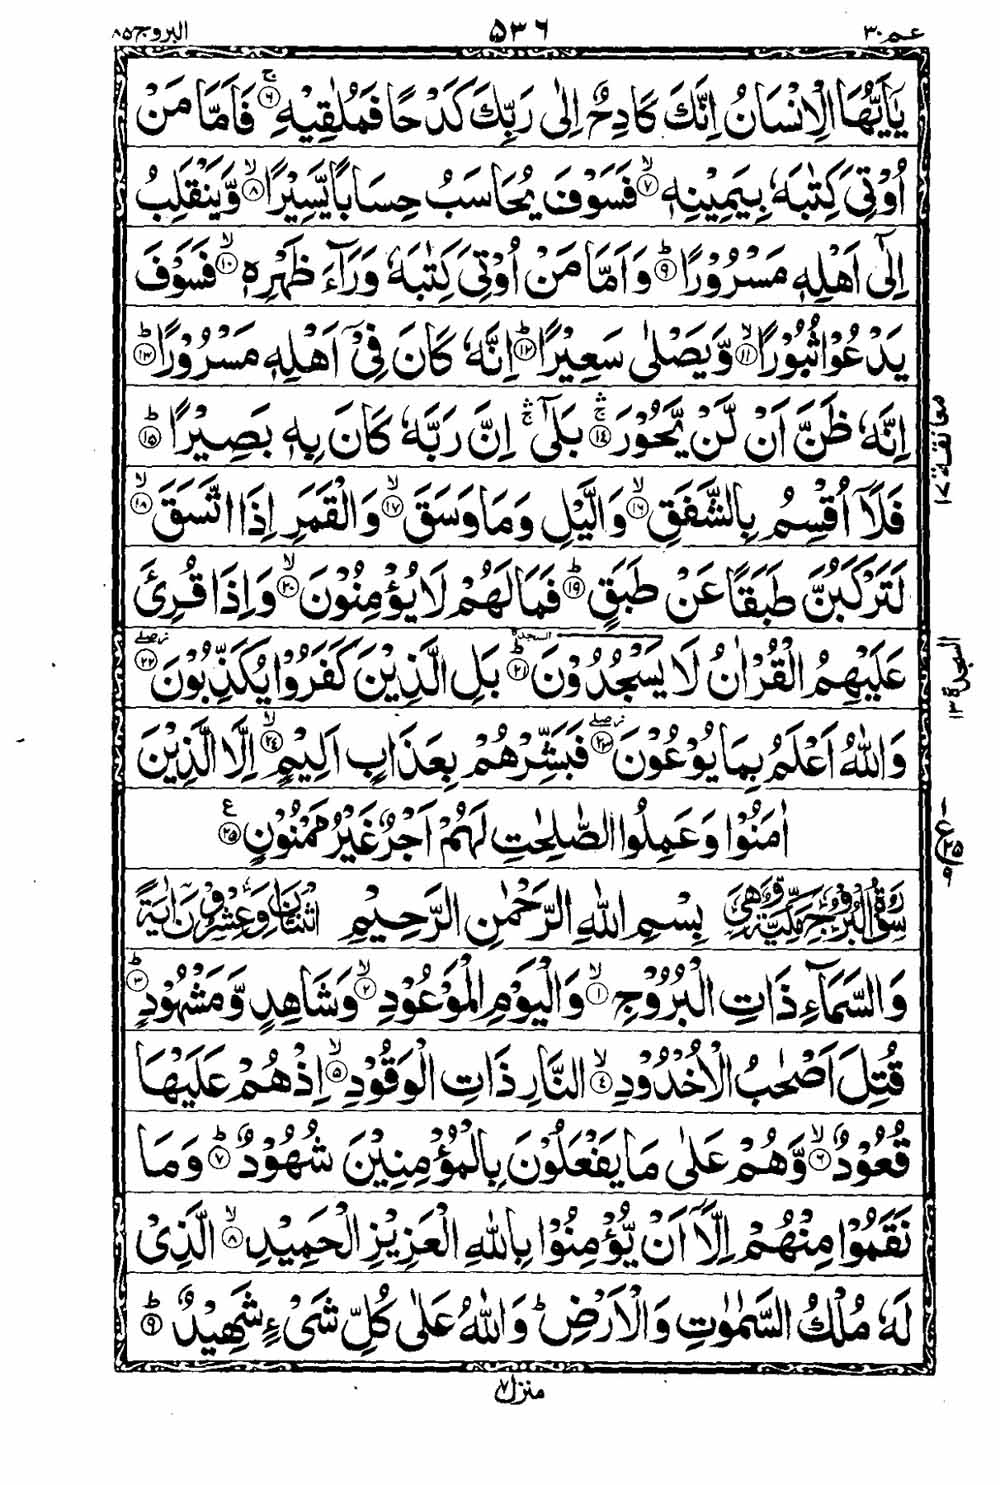 عم ٣٠
٥٣٦
البروج ٨٥
يٰۤاَيُّهَا الْاِنْسَانُ اِنَّكَ كَادِحٌ اِلٰى رَبِّكَ كَدْحًا فَمُلٰقِيْهِ ۚ﴿٦﴾ فَاَمَّا مَنْ
اُوْتِيَ كِتٰبَهٗ بِيَمِيْنِهٖ ۙ﴿٧﴾ فَسَوْفَ يُحَاسَبُ حِسَابًا يَّسِيْرًا ۙ﴿٨﴾ وَّيَنْقَلِبُ
اِلٰۤى اَهْلِهٖ مَسْرُوْرًا ؕ﴿٩﴾ وَاَمَّا مَنْ اُوْتِيَ كِتٰبَهٗ وَرَآءَ ظَهْرِهٖ ۙ﴿١٠﴾ فَسَوْفَ
يَدْعُوْا ثُبُوْرًا ۙ﴿١١﴾ وَّيَصْلٰى سَعِيْرًا ؕ﴿١٢﴾ اِنَّهٗ كَانَ فِيْۤ اَهْلِهٖ مَسْرُوْرًا ؕ﴿١٣﴾
اِنَّهٗ ظَنَّ اَنْ لَّنْ يَّحُوْرَ ۛۚ﴿١٤﴾ بَلٰۤى ۛۚ اِنَّ رَبَّهٗ كَانَ بِهٖ بَصِيْرًا ؕ﴿١٥﴾
معانقة ١٧
فَلَاۤ اُقْسِمُ بِالشَّفَقِ ۙ﴿١٦﴾ وَالَّيْلِ وَمَا وَسَقَ ۙ﴿١٧﴾ وَالْقَمَرِ اِذَا اتَّسَقَ ۙ﴿١٨﴾
لَتَرْكَبُنَّ طَبَقًا عَنْ طَبَقٍ ؕ﴿١٩﴾ فَمَا لَهُمْ لَا يُؤْمِنُوْنَ ۙ﴿٢٠﴾ وَاِذَا قُرِئَ
عَلَيْهِمُ الْقُرْاٰنُ لَا يَسْجُدُوْنَ ؕ﴿٢١﴾ السجدة بَلِ الَّذِيْنَ كَفَرُوْا يُكَذِّبُوْنَ ﴿٢٢﴾
السجدة ١٣
وَاللّٰهُ اَعْلَمُ بِمَا يُوْعُوْنَ ﴿٢٣﴾ فَبَشِّرْهُمْ بِعَذَابٍ اَلِيْمٍ ۙ﴿٢٤﴾ اِلَّا الَّذِيْنَ
اٰمَنُوْا وَعَمِلُوا الصّٰلِحٰتِ لَهُمْ اَجْرٌ غَيْرُ مَمْنُوْنٍ ﴿٢٥﴾ ع
ع ٢٥ ٩
سُوْرَةُ الْبُرُوْجِ مَكِّيَّةٌ وَّهِيَ بِسْمِ اللّٰهِ الرَّحْمٰنِ الرَّحِيْمِ اثْنَتَانِ وَعِشْرُوْنَ اٰيَةً
وَالسَّمَآءِ ذَاتِ الْبُرُوْجِ ۙ﴿١﴾ وَالْيَوْمِ الْمَوْعُوْدِ ۙ﴿٢﴾ وَشَاهِدٍ وَّمَشْهُوْدٍ ؕ﴿٣﴾
قُتِلَ اَصْحٰبُ الْاُخْدُوْدِ ۙ﴿٤﴾ النَّارِ ذَاتِ الْوَقُوْدِ ۙ﴿٥﴾ اِذْ هُمْ عَلَيْهَا
قُعُوْدٌ ۙ﴿٦﴾ وَّهُمْ عَلٰى مَا يَفْعَلُوْنَ بِالْمُؤْمِنِيْنَ شُهُوْدٌ ؕ﴿٧﴾ وَمَا
نَقَمُوْا مِنْهُمْ اِلَّاۤ اَنْ يُّؤْمِنُوْا بِاللّٰهِ الْعَزِيْزِ الْحَمِيْدِ ۙ﴿٨﴾ الَّذِيْ
لَهٗ مُلْكُ السَّمٰوٰتِ وَالْاَرْضِ ؕ وَاللّٰهُ عَلٰى كُلِّ شَيْءٍ شَهِيْدٌ ؕ﴿٩﴾
منزل ٧